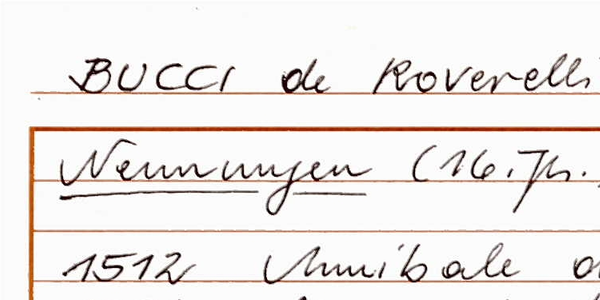 BUCCI de Roverelli
Nennungen (16. Jh.
1512 Annibale d